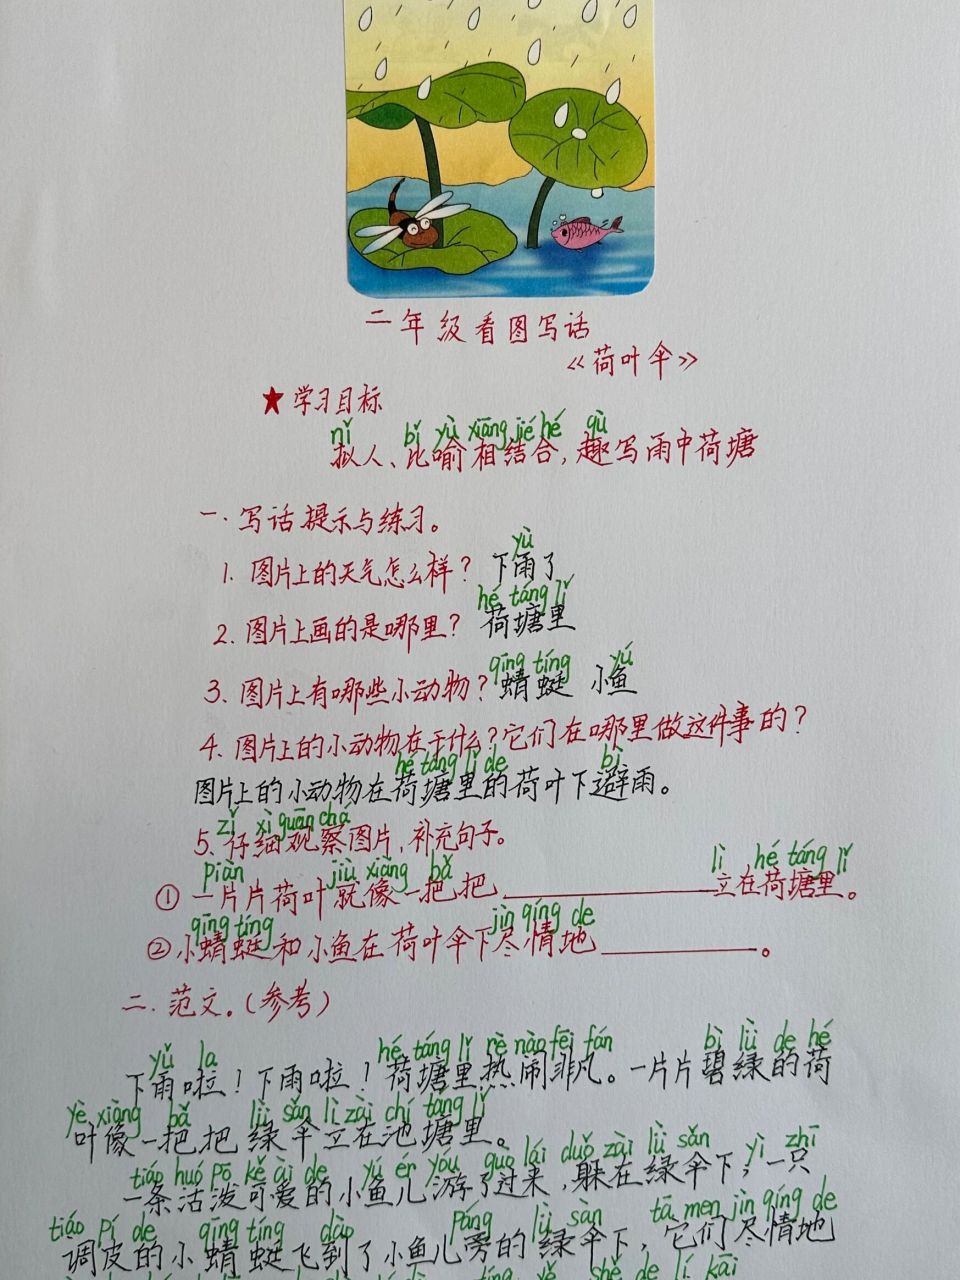 二年级看图写话
《荷叶伞》
★学习目标
nǐ bǐ yù xiāng jié hé qù
拟人、比喻相结合，趣写雨中荷塘
一.写话提示与练习。
yù
1.图片上的天气怎么样？下雨了
hé táng lǐ
2.图片上画的是哪里？荷塘里
qīng tíng yú
3.图片上有哪些小动物？蜻蜓 小鱼
4.图片上的小动物在干什么？它们在哪里做这件事的？
hé táng lǐ de bì
图片上的小动物在荷塘里的荷叶下避雨。
zǐ xì guān chá
5.仔细观察图片，补充句子。
piàn jiù xiàng bǎ lì hé táng lǐ
①一片片荷叶就像一把把________立在荷塘里。
qīng tíng jìn qíng de
②小蜻蜓和小鱼在荷叶伞下尽情地________。
二.范文。（参考）
yǔ la hé táng lǐ rè nào fēi fán bì lǜ de hé
下雨啦！下雨啦！荷塘里热闹非凡。一片片碧绿的荷
yè xiàng bǎ lǜ sǎn lì zài chí táng lǐ
叶像一把把绿伞立在池塘里。
tiáo huó pō kě ài de yú ér yóu guò lái duǒ zài lǜ sǎn yì zhī
一条活泼可爱的小鱼儿游了过来，躲在绿伞下，一只
tiáo pí de qīng tíng dào páng lǜ sàn tā men jìn qíng de
调皮的小蜻蜓飞到了小鱼儿旁的绿伞下，它们尽情地